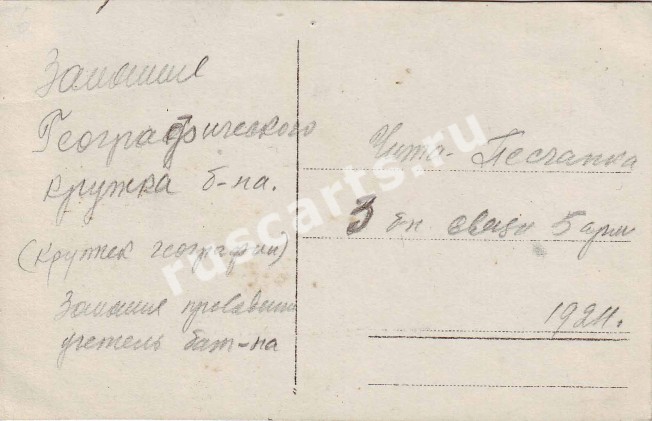 Занятие
Географического
кружка б-на.
(кружек географии)
Занятие
учетель бат-на
Чита-Песчанка
3 бн связи 5 арм
1924.
ruscarts.ru